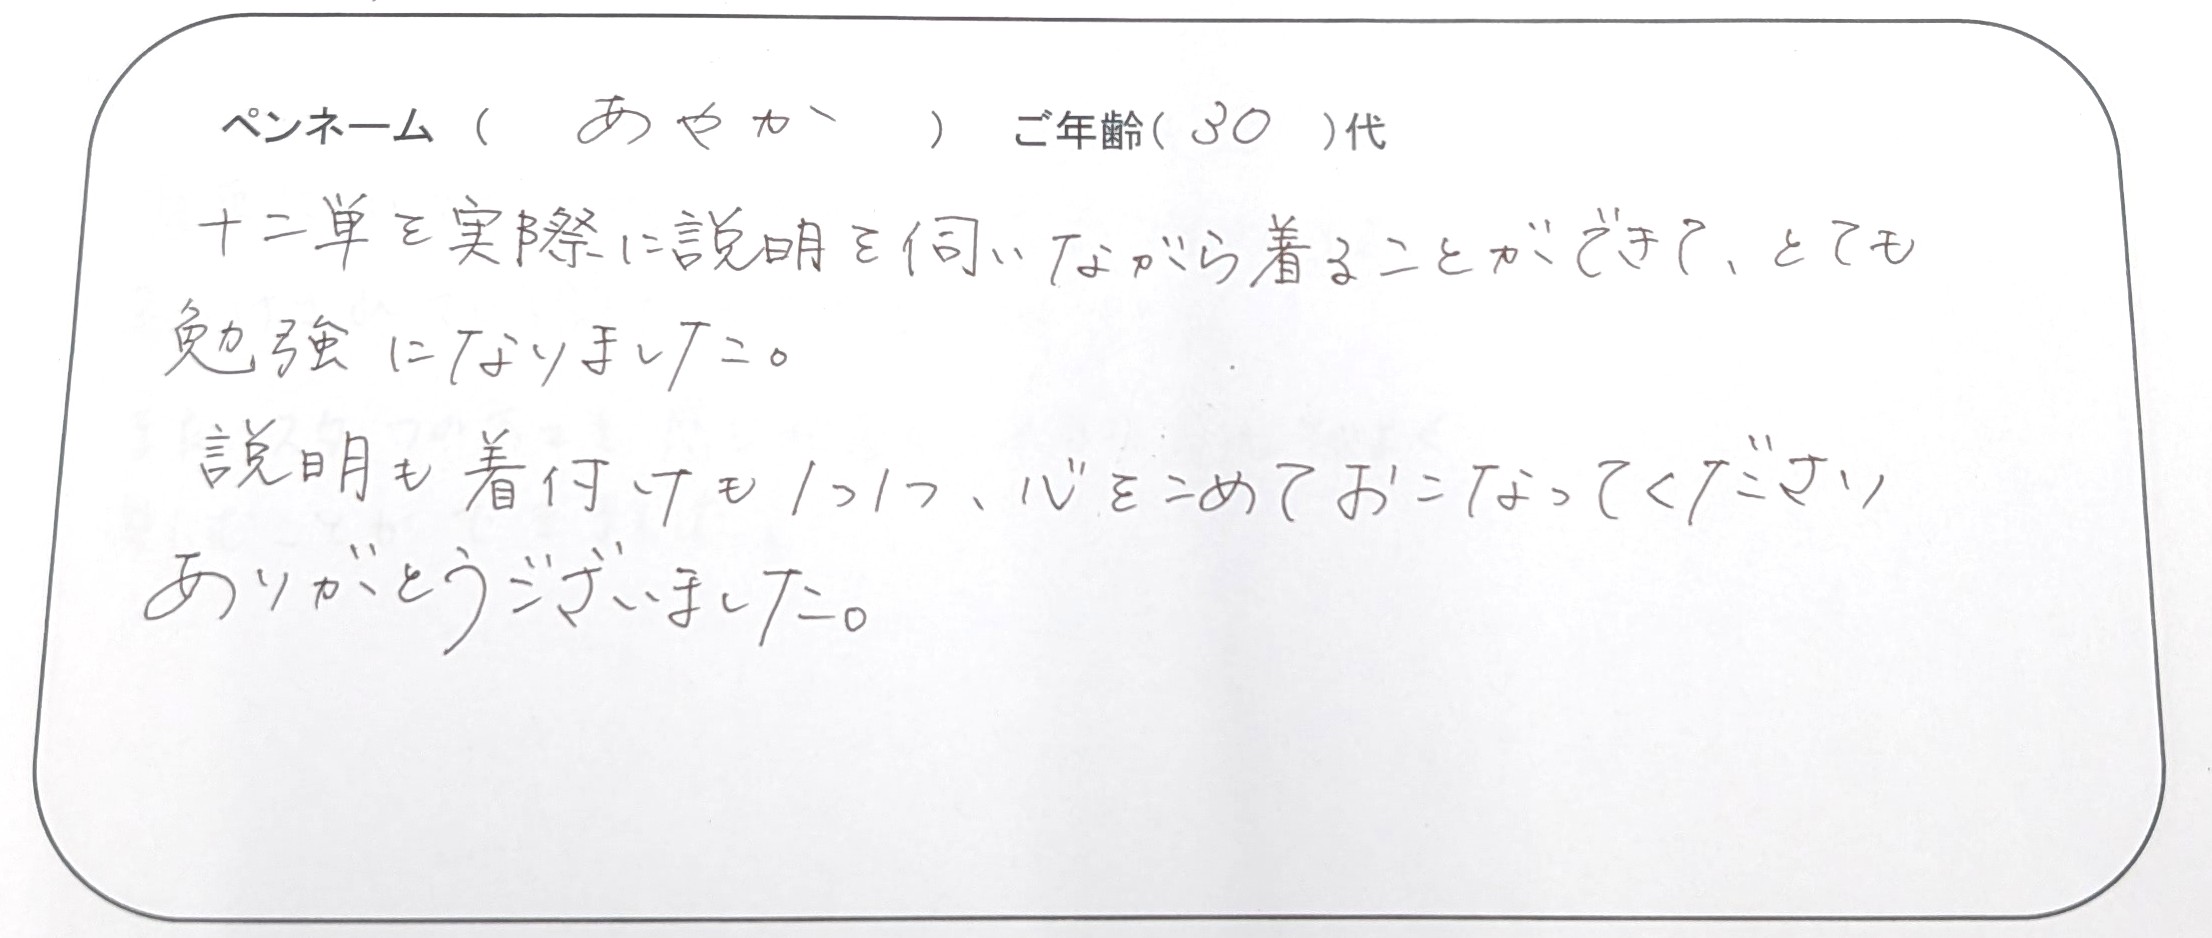 ペンネーム ( あやか ) ご年齢( 30 )代
十二単を実際に説明を伺いながら着ることができて、とても
勉強になりました。
説明も着付けも1つ1つ、心をこめておこなってくださり
ありがとうございました。